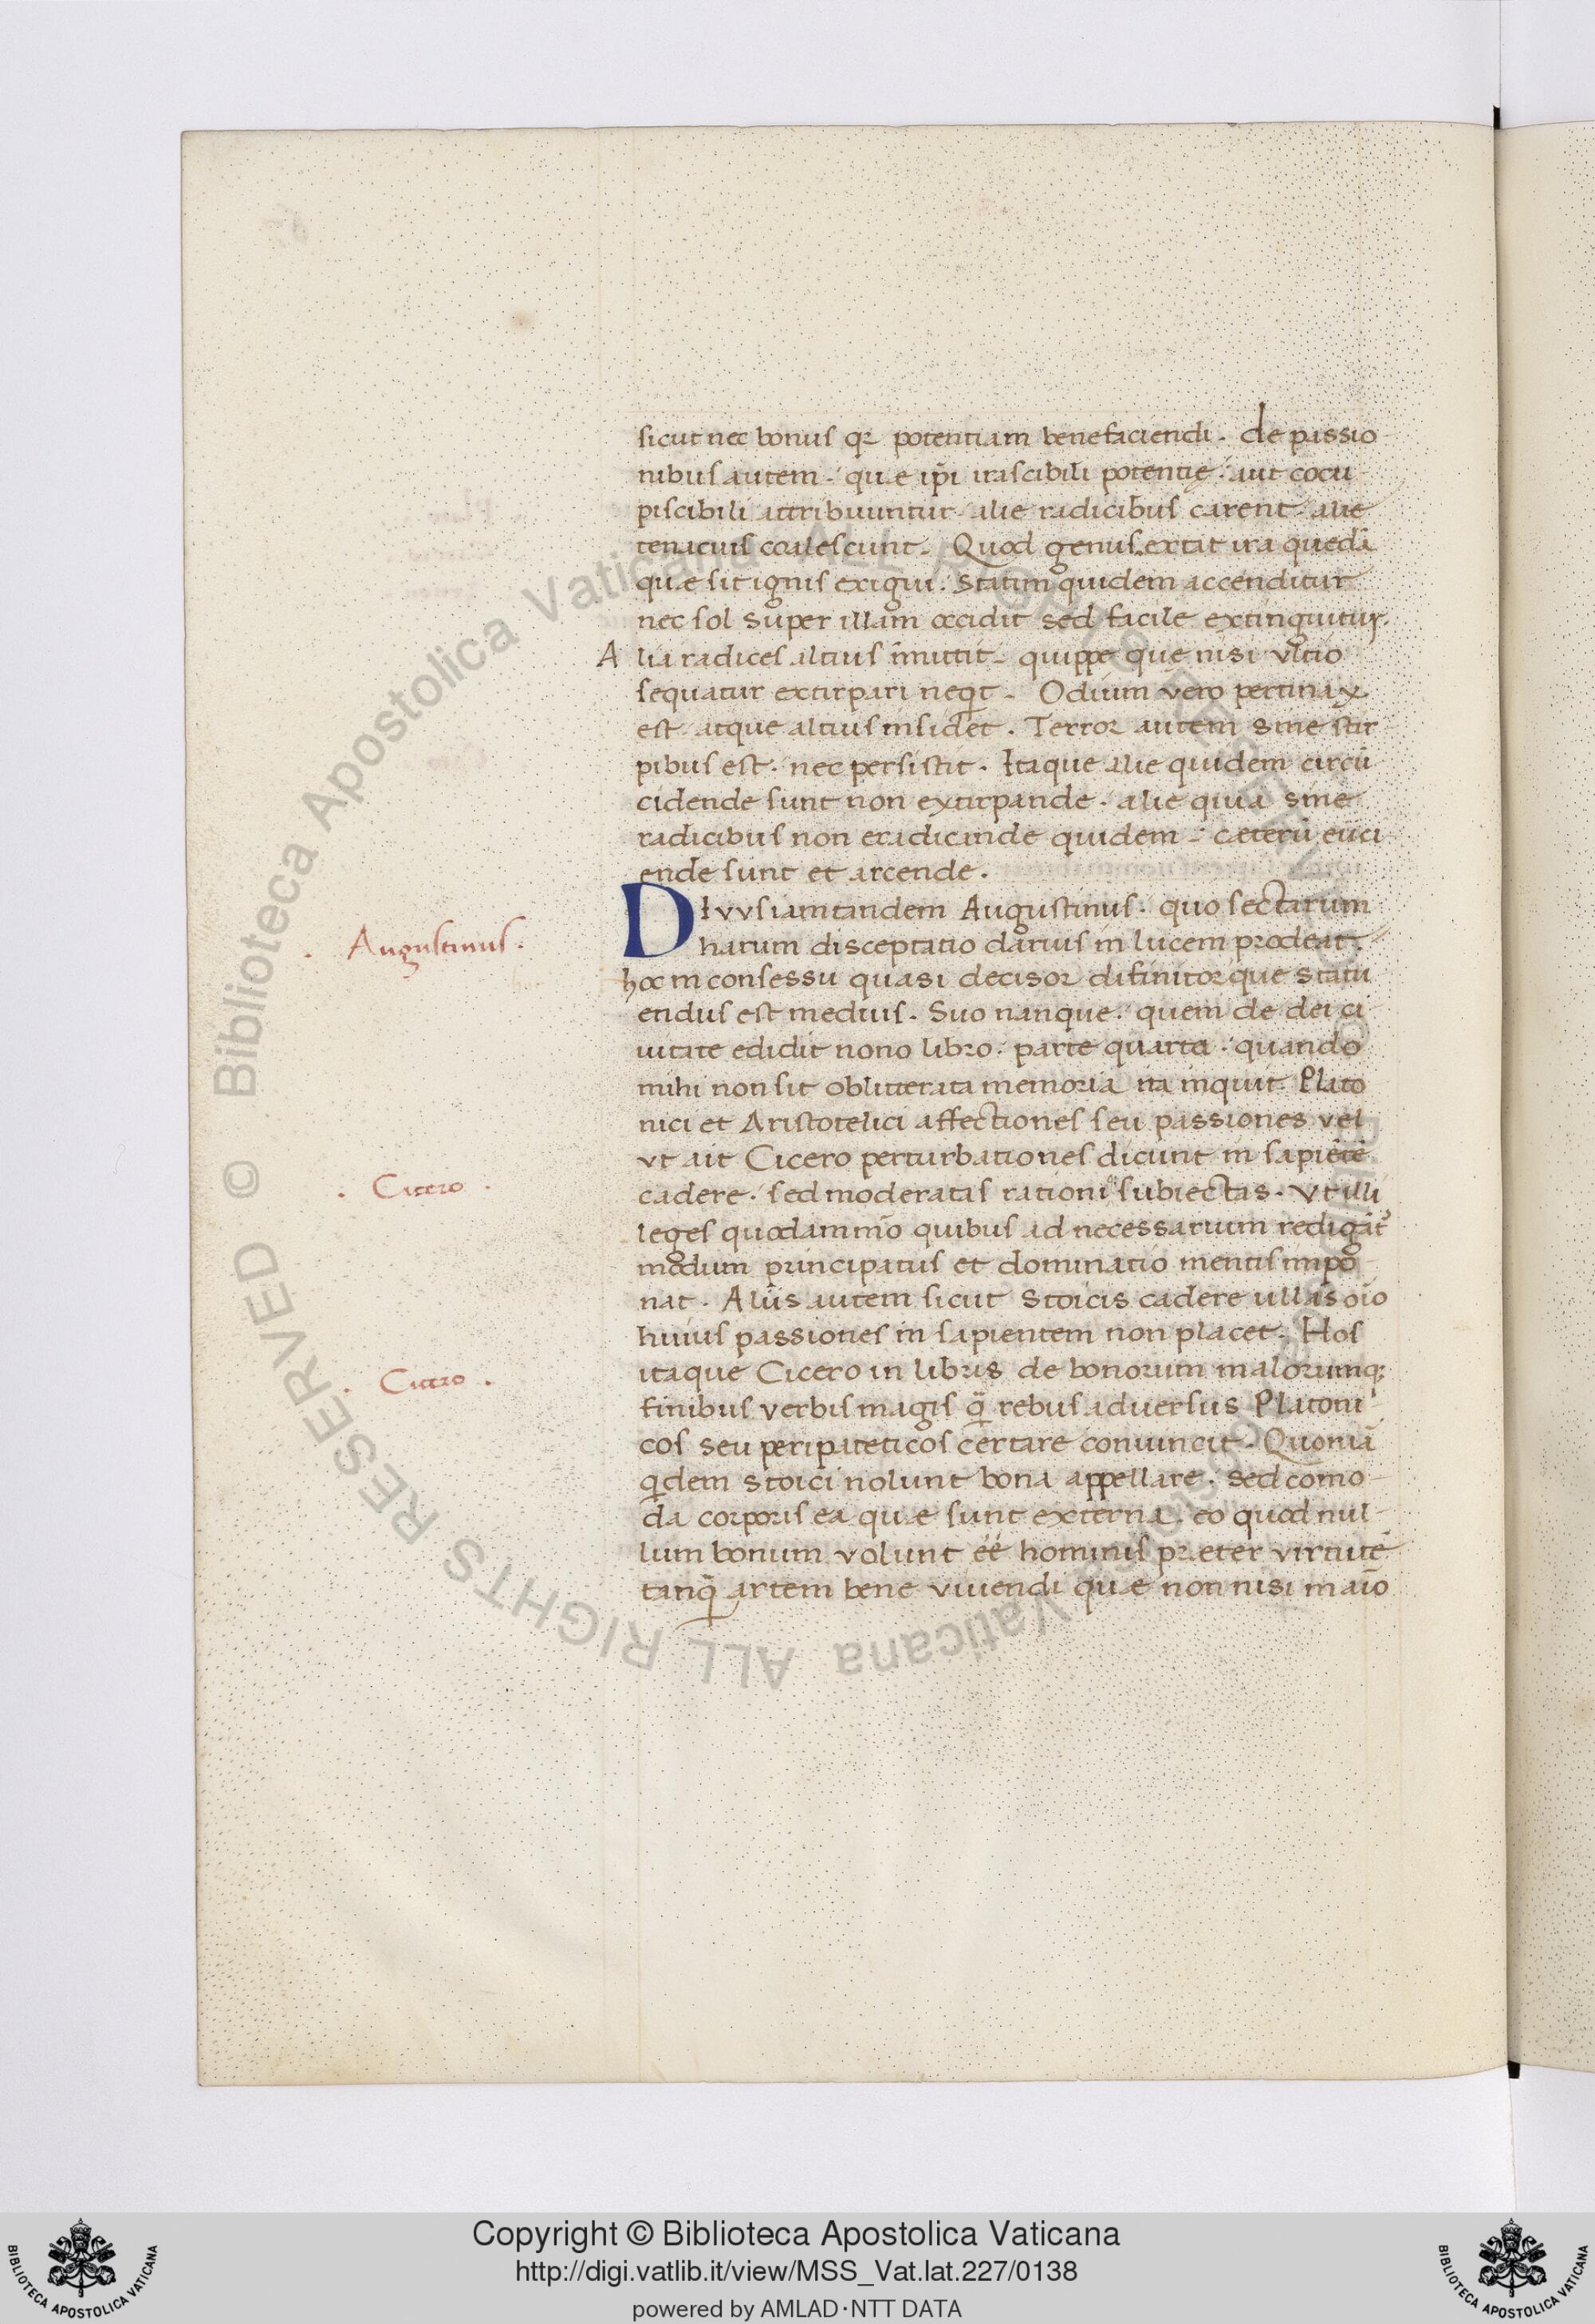 sicut nec bonus qꝛ potentiam benefaciendi. de passio
nibus autem. que ip̄i irascibili potentię. aut cōcu
piscibili attribuuntur. alie radicibus carent. alie
tenacius coalescunt. Quod genus extat ira quedā
quæ sit ignis exigui. Statim quidem accenditur
nec sol super illam occidit sed facile extinguitur.
A lia radices altius īmittit. quippe que nisi vltio
sequatur extirpari neqͥt. Odium vero pertinax
est atque altius insidet. Terror autem sine stir
pibus est. nec persistit. Itaque alie quidem circū
cidende sunt non extirpande. alie quia sine
radicibus non eradicande quidem. cæterū eiici
ende sunt et arcende.
DIvvs iam tandem Augustinus. quo sectarum
harum disceptatio clarius in lucem prodeat.
hoc in consessu quasi decisor difinitorque statu
endus est medius. Suo nanque. quem de dei ci
uitate edidit nono libro. parte quarta. quando
mihi non sit oblitterata memoria ita inquit. Plato
nici et Aristotelici affectiones seu passiones vel
vt ait Cicero perturbationes dicunt in sapiētē
cadere. sed moderatas rationiqꝫ subiectas. Vt illi
leges quodammō quibus ad necessarium redigāt᷑
modum principatus et dominatio mentis impo
nat. Aliis autem sicut Stoicis cadere ullas oīo
huius passiones in sapientem non placet. Hos
itaque Cicero in libris de bonorum malorumqꝫ
finibus verbis magis q̄ rebus aduersus Platoni
cos seu peripateticos certare conuincit. Quoniā
qͥdem stoici nolunt bona appellare. sed cōmo
da corporis ea quæ sunt externa. eo quod nul
lum bonum volunt eē hominis præter virtutē
tanq̄ artem bene viuendi quæ non nisi in aīo
. Augustinus .
. Cicero .
. Cicero .
© Biblioteca Apostolica Vaticana ALL RIGHTS RESERVED
Copyright © Biblioteca Apostolica Vaticana
http://digi.vatlib.it/view/MSS_Vat.lat.227/0138
powered by AMLAD·NTT DATA
BIBLIOTECA APOSTOLICA VATICANA
BIBLIOTECA APOSTOLICA VATICANA